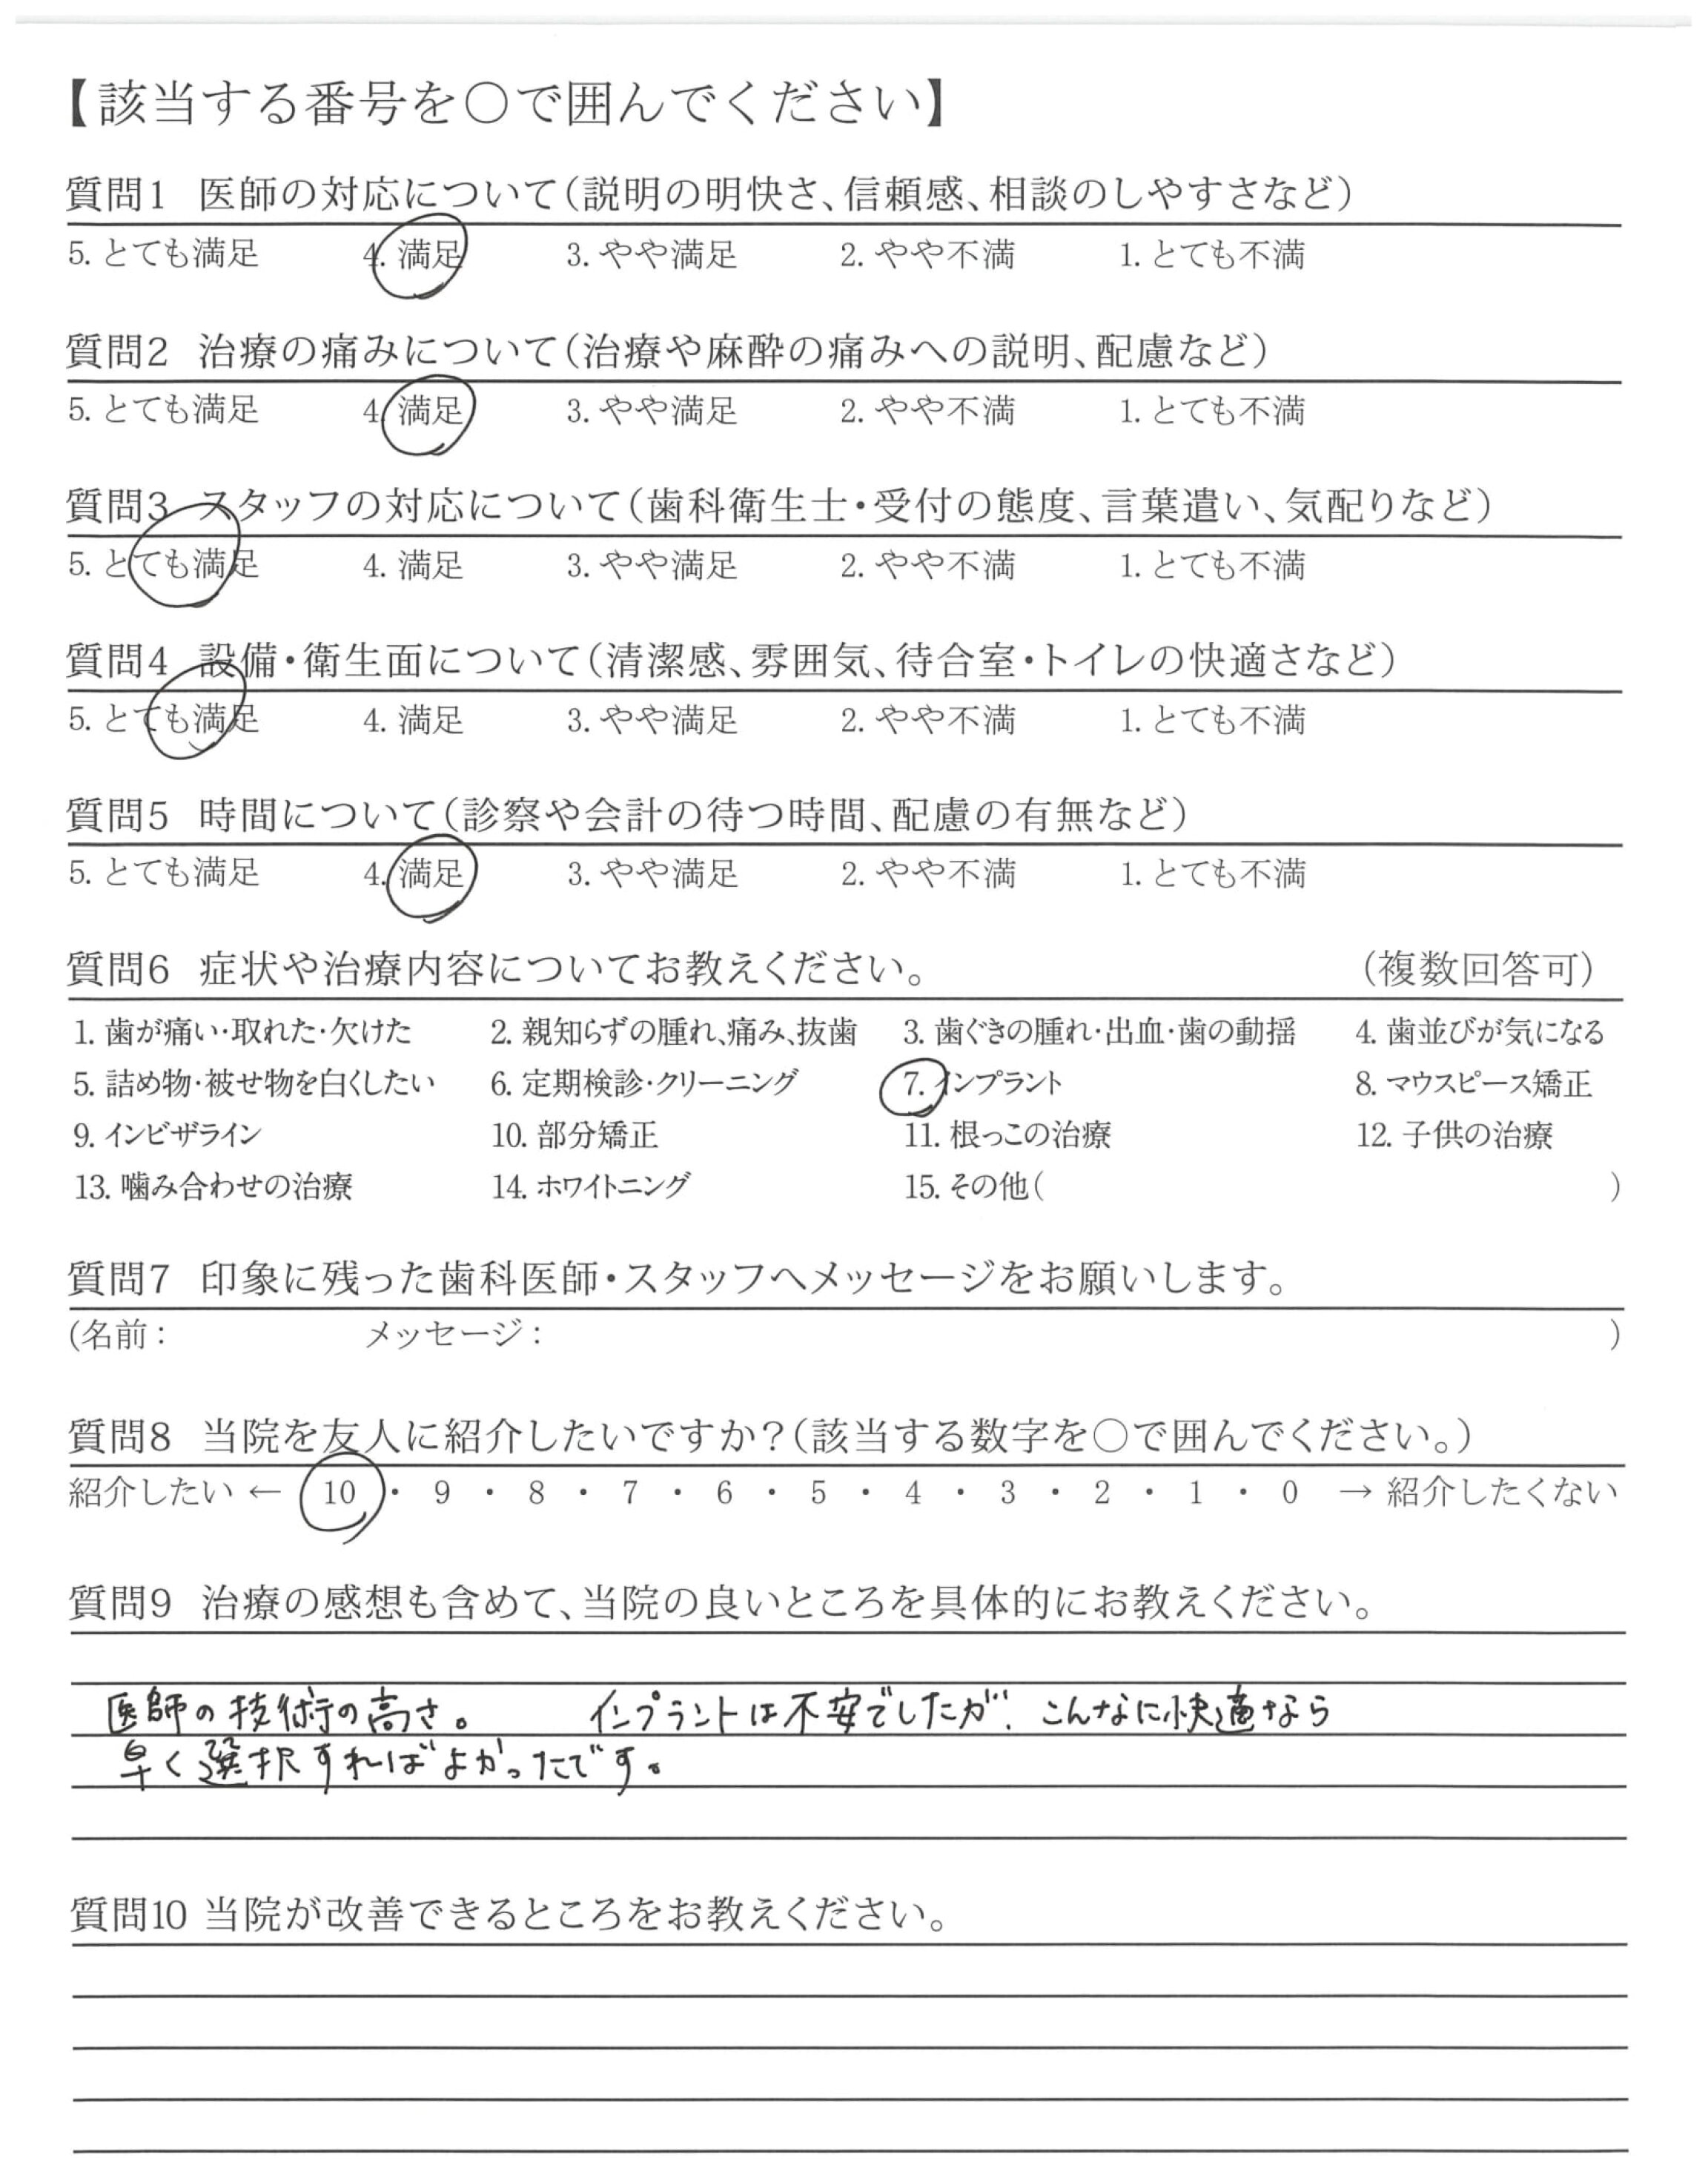 【該当する番号を○で囲んでください】
質問1 医師の対応について(説明の明快さ、信頼感、相談のしやすさなど)
5. とても満足 4. 満足 3. やや満足 2. やや不満 1. とても不満
質問2 治療の痛みについて(治療や麻酔の痛みへの説明、配慮など)
5. とても満足 4. 満足 3. やや満足 2. やや不満 1. とても不満
質問3 スタッフの対応について(歯科衛生士・受付の態度、言葉遣い、気配りなど)
5. とても満足 4. 満足 3. やや満足 2. やや不満 1. とても不満
質問4 設備・衛生面について(清潔感、雰囲気、待合室・トイレの快適さなど)
5. とても満足 4. 満足 3. やや満足 2. やや不満 1. とても不満
質問5 時間について(診察や会計の待つ時間、配慮の有無など)
5. とても満足 4. 満足 3. やや満足 2. やや不満 1. とても不満
質問6 症状や治療内容についてお教えください。 (複数回答可)
1. 歯が痛い・取れた・欠けた 2. 親知らずの腫れ、痛み、抜歯 3. 歯ぐきの腫れ・出血・歯の動揺 4. 歯並びが気になる
5. 詰め物・被せ物を白くしたい 6. 定期検診・クリーニング 7. インプラント 8. マウスピース矯正
9. インビザライン 10. 部分矯正 11. 根っこの治療 12. 子供の治療
13. 噛み合わせの治療 14. ホワイトニング 15. その他( )
質問7 印象に残った歯科医師・スタッフへメッセージをお願いします。
(名前: メッセージ: )
質問8 当院を友人に紹介したいですか?(該当する数字を○で囲んでください。)
紹介したい ← 10 ・ 9 ・ 8 ・ 7 ・ 6 ・ 5 ・ 4 ・ 3 ・ 2 ・ 1 ・ 0 → 紹介したくない
質問9 治療の感想も含めて、当院の良いところを具体的にお教えください。
医師の技術の高さ。 インプラントは不安でしたが、こんなに快適なら
早く選択すればよかったです。
質問10 当院が改善できるところをお教えください。